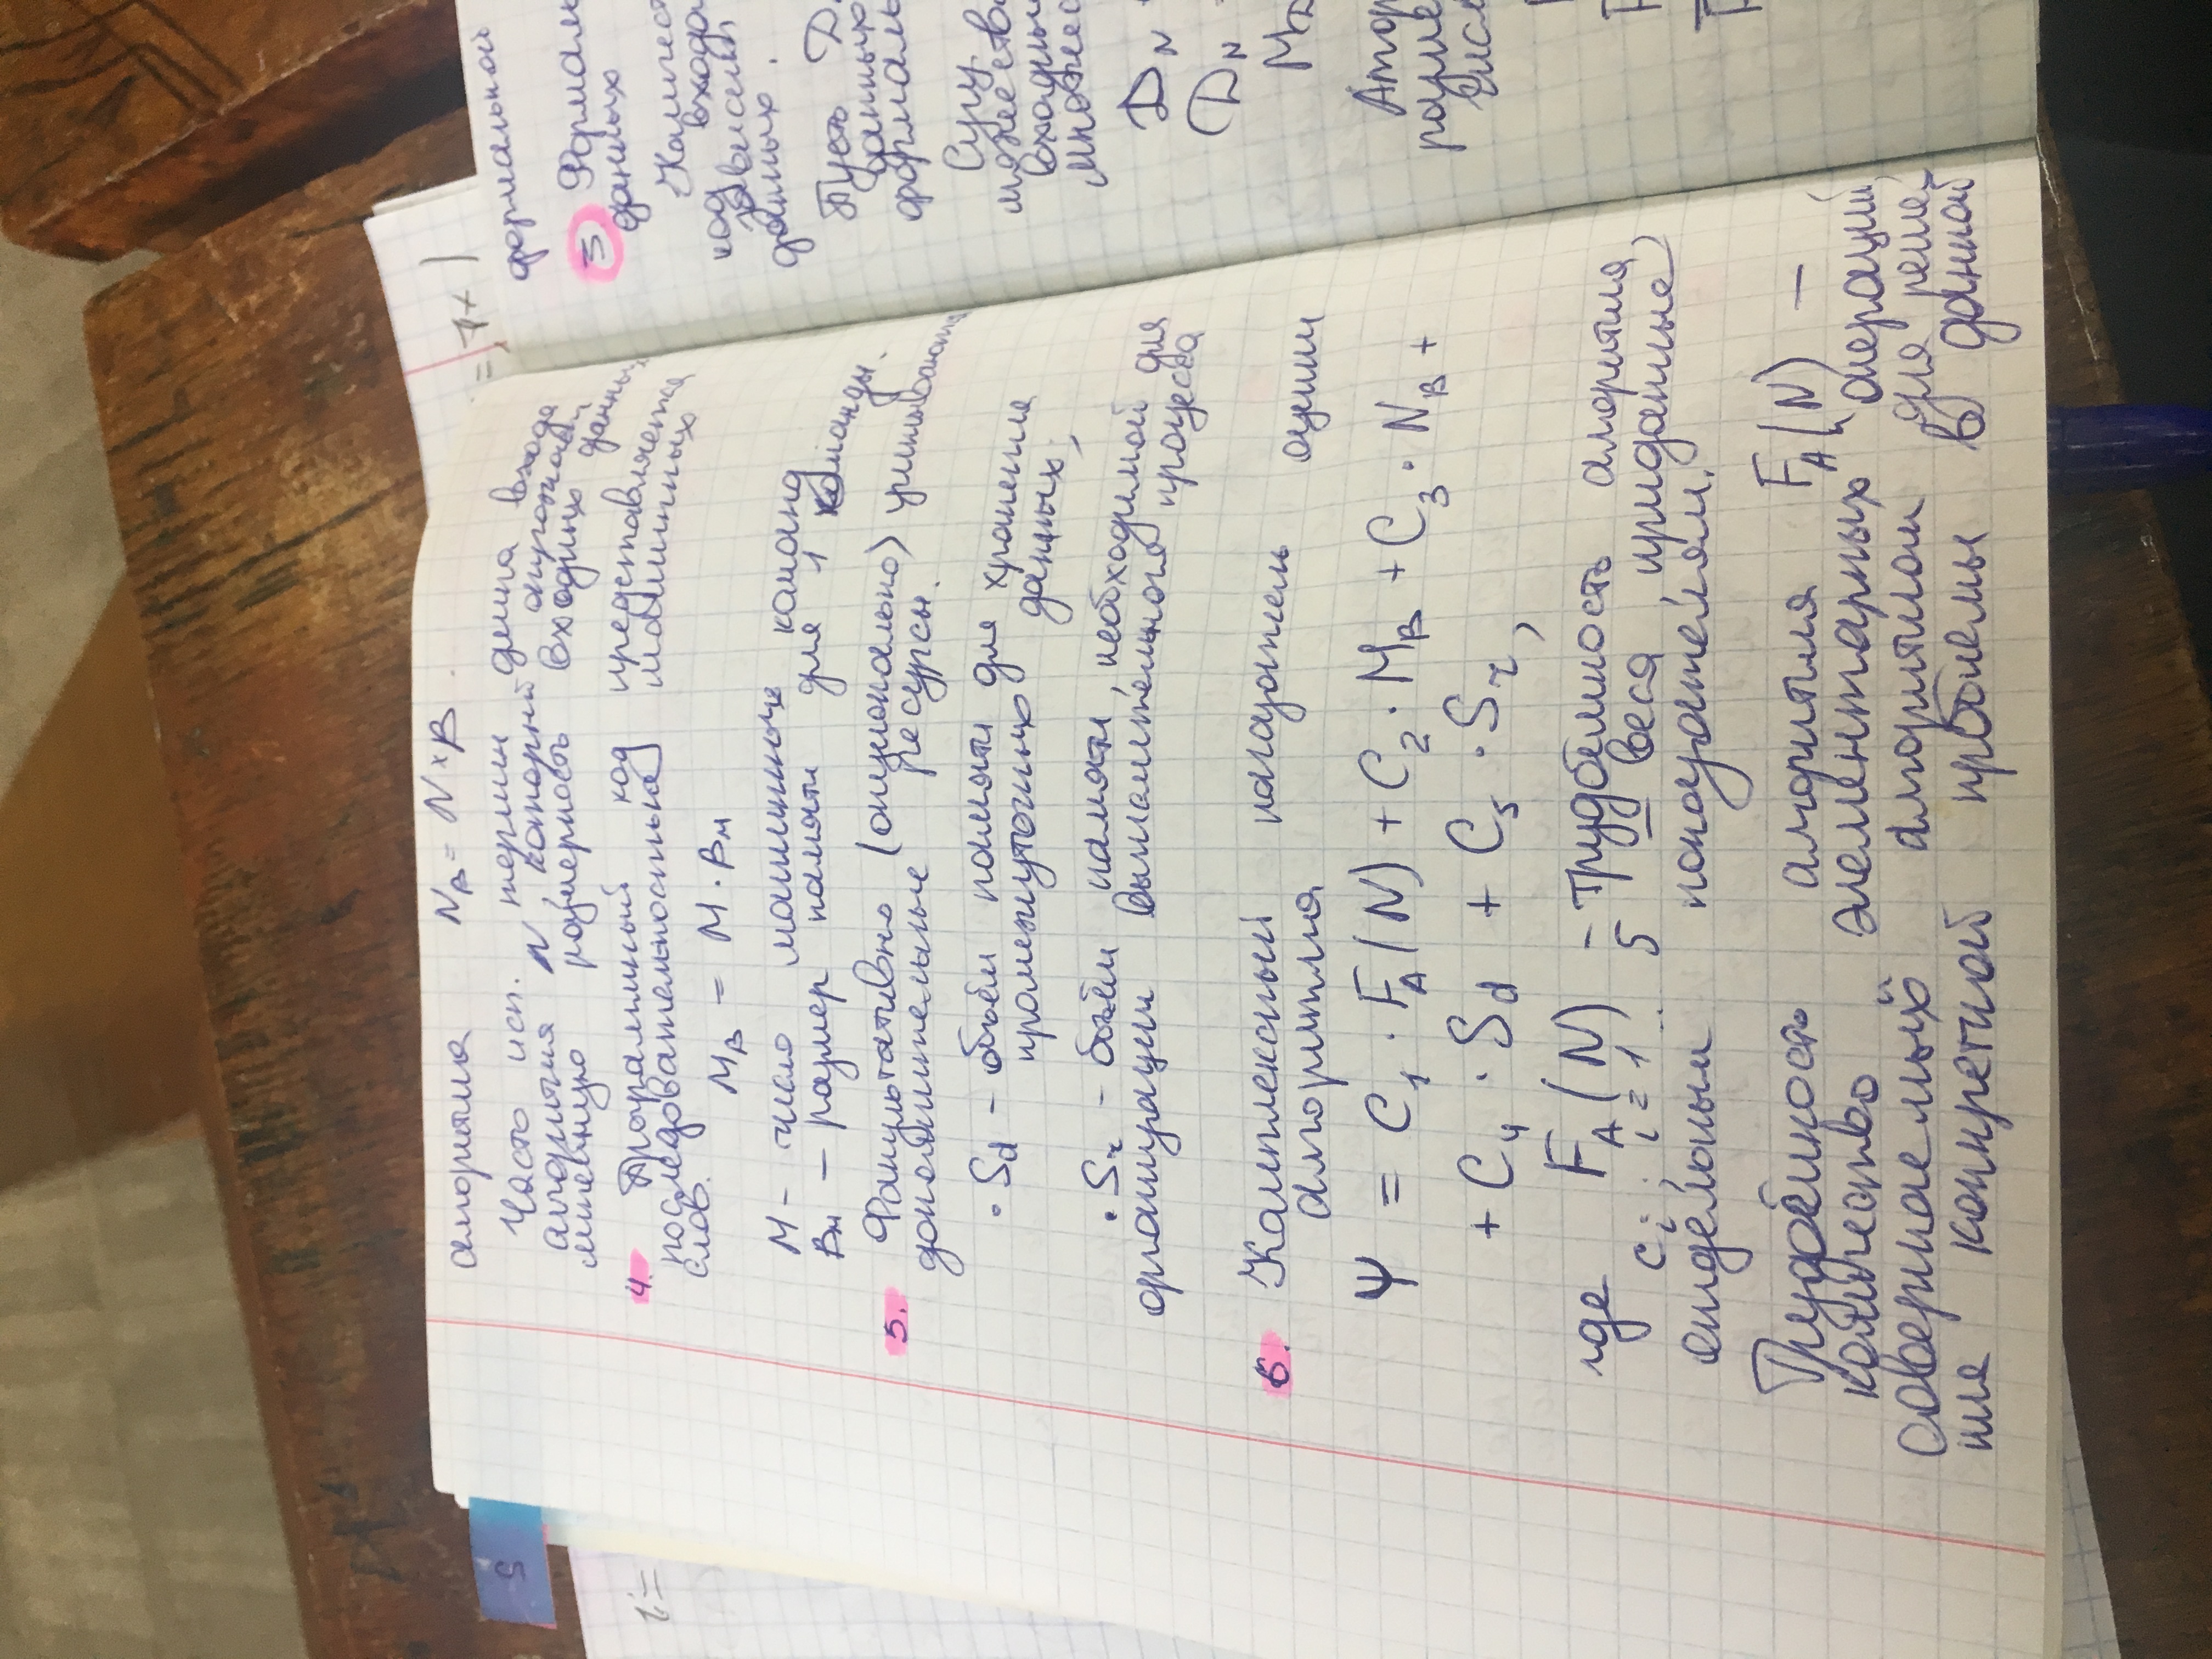 алгоритма N_B = N × B
Часто исп. термин длина входа
алгоритма N, который отражает
линейную размерность входных данных
4. Программный код представляется
последовательностью машинных
слов.
M_B = M · B_M
M – число машинных команд
B_M – размер памяти для 1 команды.
5. Факультативно (опционально) учитываются
дополнительные ресурсы.
· S_d – объём памяти для хранения
промежуточных данных;
· S_r – объём памяти, необходимой для
организации вычислительного процесса
6. Комплексный показатель оценки
алгоритма
Ψ = C_1 · F_A(N) + C_2 · M_B + C_3 · N_B +
+ C_4 · S_d + C_5 · S_r,
где F_A(N) – трудоёмкость алгоритма,
c_i ; i = 1 .. 5 – веса, приданные
отдельным показателям.
Трудоёмкость алгоритма F_A(N) –
количество "элементарных" операций,
совершаемых алгоритмом для реше-
ния конкретной проблемы в данной
формальной
3.
данных
код входа
зависит
данных.
Пусть D
данных
входные
D_N
D_N
5
i =